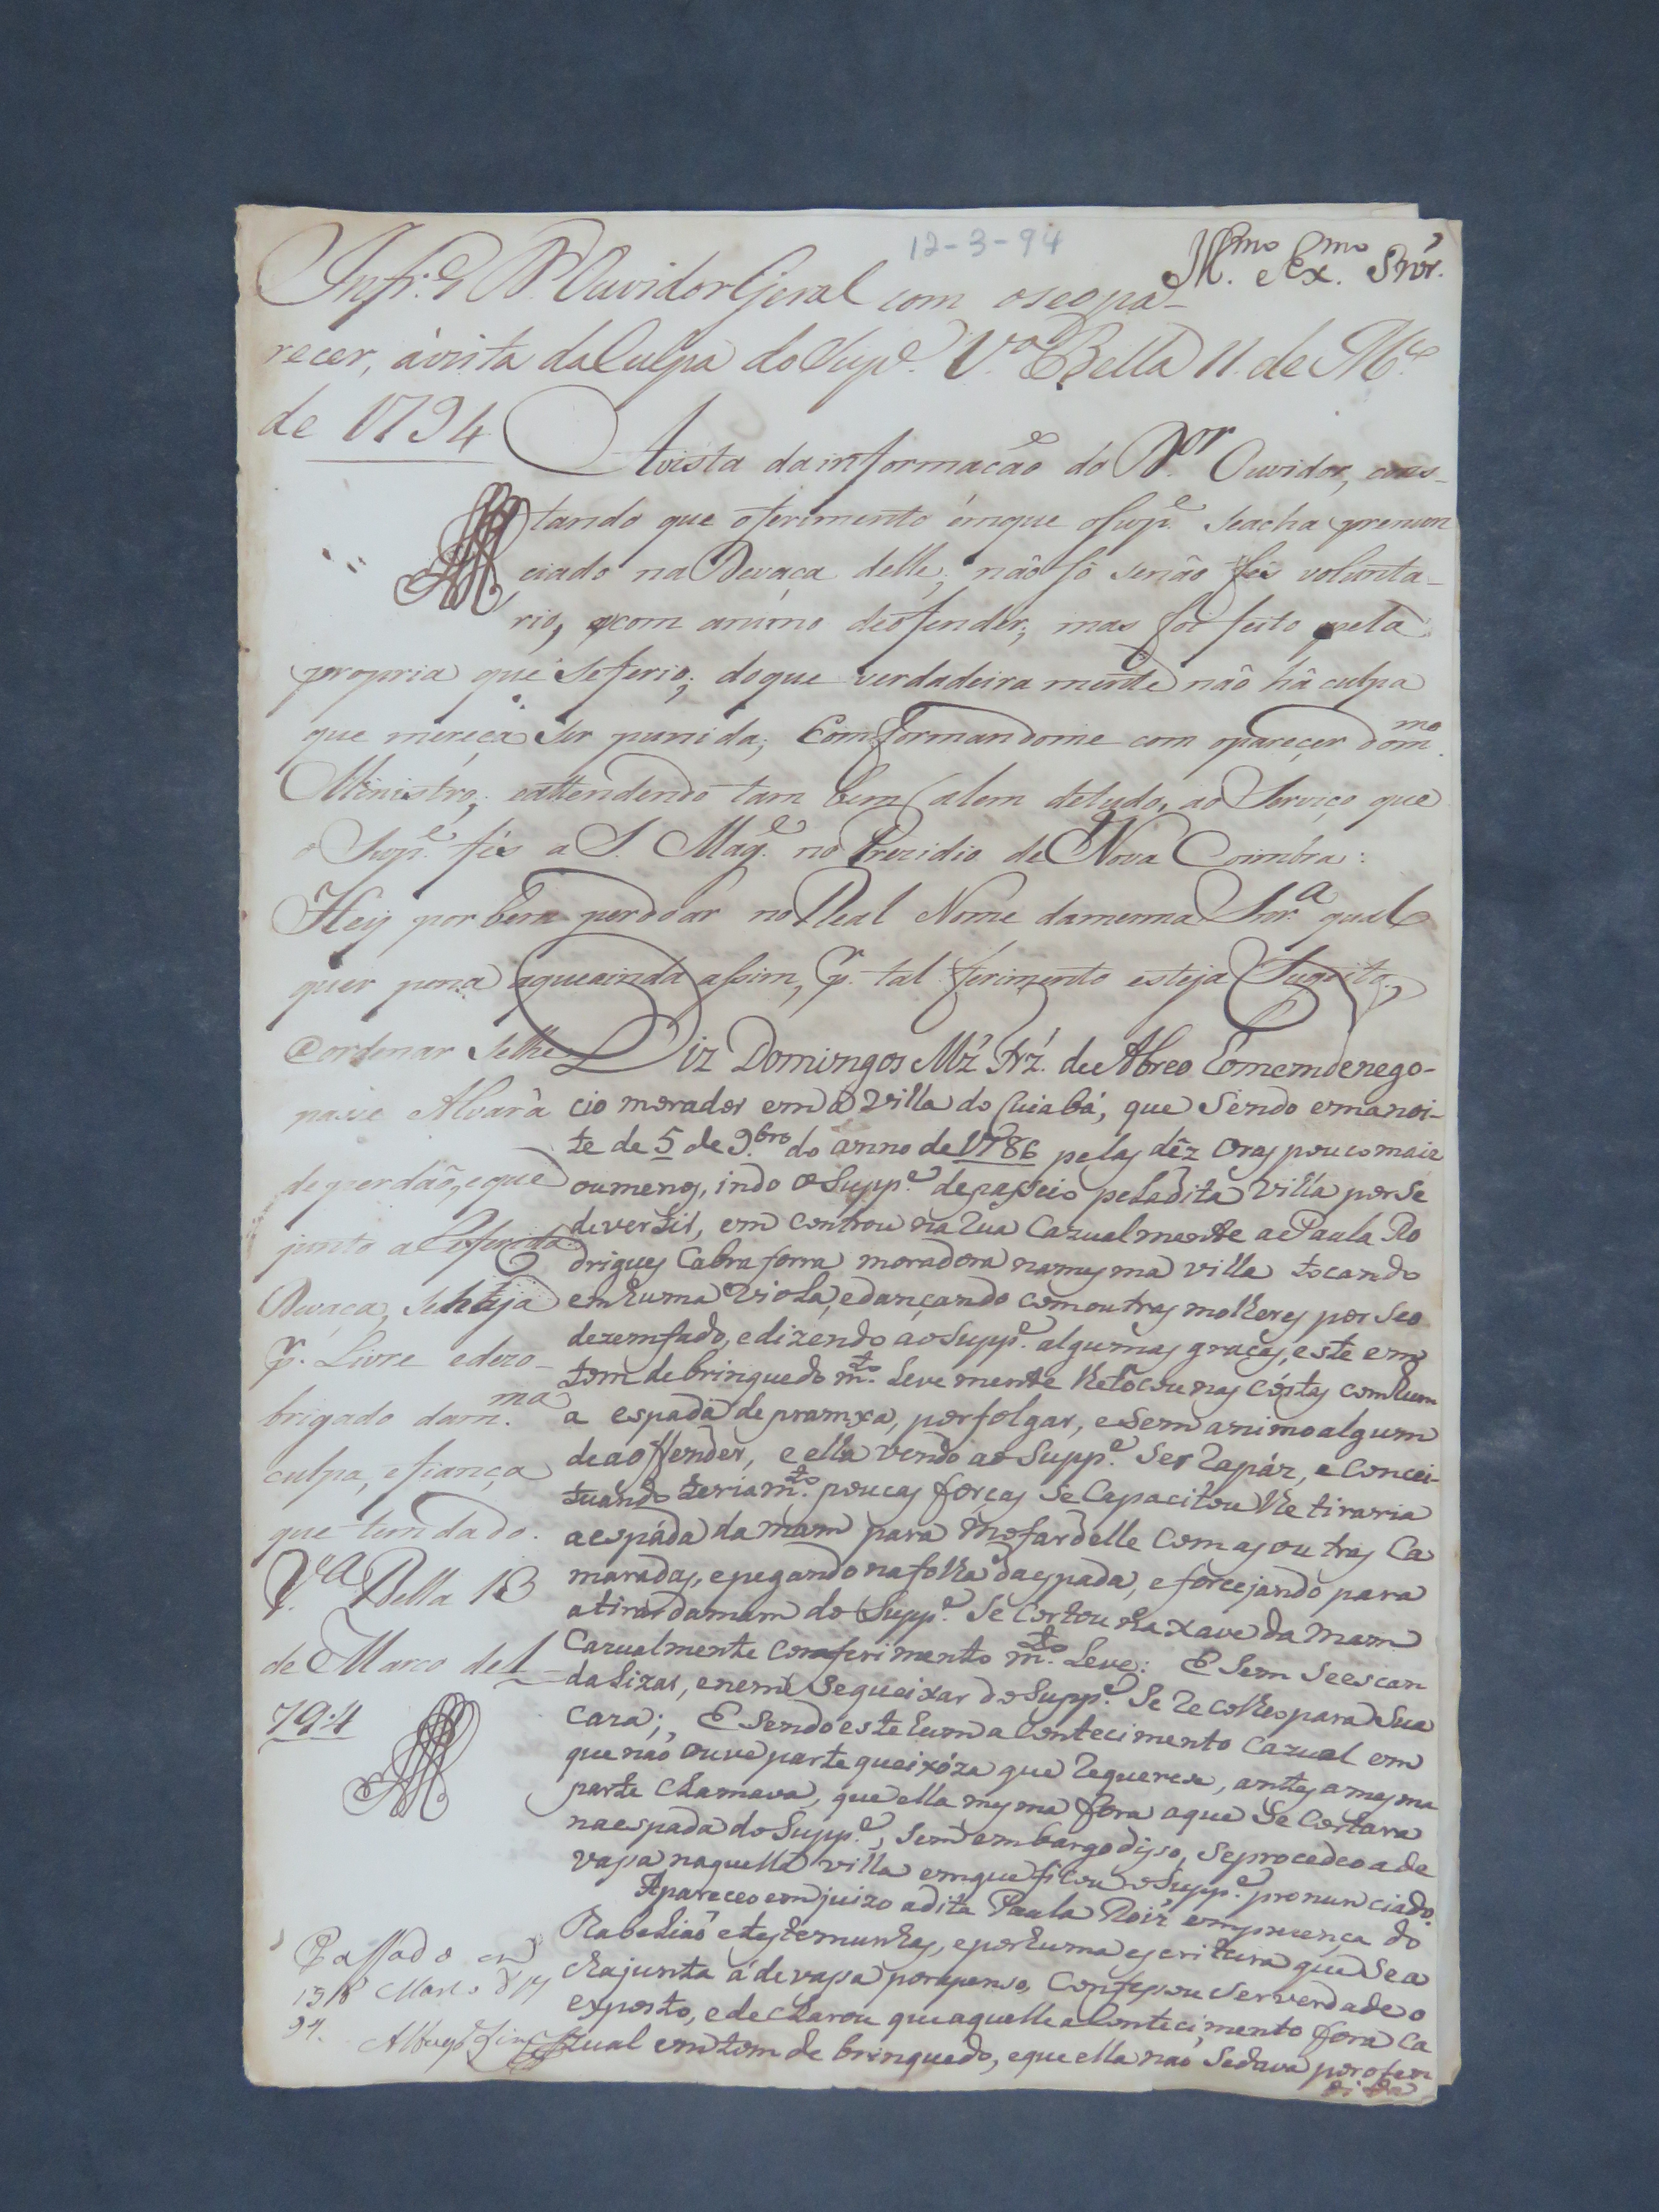 12-3-94
Ill.mo e Ex.mo Snr.
Infr.e o Dr. Ouvidor Geral com o seo pa-
recer, á vista da Culpa do Sup.e V.a Bella 11. de M.ço
de 1794
Á vista da informação do D.or Ouvidor, cons-
tando que o ferimento ém que o Sup.e se acha pronun
ciado na Devaça delle, não só senão fés volunta-
rio, e com animo de ofender; mas foi feito pela
propria que se ferio; do que verdadeiramente não há culpa
que mereça ser punida; Comformandome com o pareçer do m.mo
Ministro; e attendendo tam bem, alem de tudo, ao Serviço que
o Sup.e fés a S. Mag.e no Prezidio de Nova Coimbra:
Hey por bem perdoar no Real Nome da mesma Snr.a qual
quer pena a que ainda assim, p.r tal ferimento esteja Sugeito,
e ordenar se lhe
passe Alvará
de perdão, e que
junto a referida
Devaça, se haja
p.r Livre e dezo-
brigado da m.ma
culpa, e fiança
que tem dado.
V.a Bella 13
de Marco de 1
794
Diz Domingos Mz' Frz'. de Abreo homem de nego-
cio morador em a Villa do Cuiabá, que Sendo em a noi-
te de 5 de 9.bro do anno de 1786 pelas dêz oras pouco mais
ou menos, indo o Supp.e de passeio pela dita Villa por se
devertir, em controu na rua Cazualmente a Paula Ro
drigues Cabra forra moradora na mesma villa tocando
em huma Viola, e dançando com outras molheres por seo
dezemfado, e dizendo ao Supp.e algumas graças, este em
tom de brinquedo m.to levemente lhe tocou nas cóstas com hum
a espada de pramxa, por folgar, e sem animo algum
de a offender, e ella vendo ao Supp.e ser rapáz, e concei-
tuando teria m.to poucas forças se capacitou lhe tiraria
a espáda da mam para mofar delle com as outras Ca
maradas, e pegando na folha da espada, e forcejando para
a tirar da mam do Supp.e se cortou na xave da mam
Cazualmente com ferimento m.to Leve: E sem se escan
dalizar, e nem se queixar do Supp.e se recolheo para sua
caza; E sendo este hum acontecimento cazual em
que não ouve parte queixóza que requerese, antes a mesma
parte clamava, que ella mesma fora a que se cortara
na espada do Supp.e, sem embargo diso, se procedeo a de
vasa naquella villa em que ficou o Supp.e pronunciado.
Apareceo em juizo a dita Paula Roiz' em prezença do
Tabelião e testemunhas, e por huma escritura que se a
cha junta á devasa por apenso, Confessou ser verdade o
exposto, e declarou que aquelle acontecimento fora ca
zual em tom de brinquedo, e que ella não se dava por ofen
dida
Passado em
13 Março d 17
94.